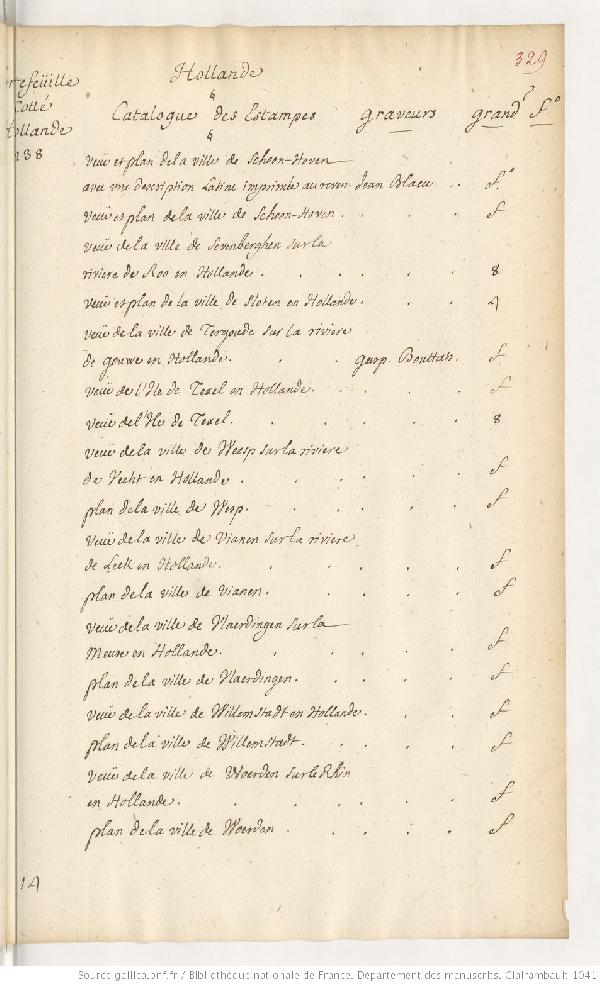 329
Hollande
rtefeüille
Cotté
ollande
138
Catalogue des Estampes graveurs grandr fo
veüe et plan de la ville de Schoon-Hoven
avec une description Latine imprimée au revers Jean Blaeu . . fo
veüe et plan de la ville de Schoon-Hoven . . . . f
veüe de la ville de Sevenberghen sur la
riviere de Roo en Hollande . . . . . . 8
veüe et plan de la ville de Sloten en Hollande . . . 4
veüe de la ville de Tergoude sur la riviere
de gouwe en Hollande . . . gasp. Bouttats . f
veüe de l'Ile de Texel en Hollande . . . . f
veüe de l'Ile de Texel . . . . . 8
veüe de la ville de Weesp sur la riviere
de Vecht en Hollande . . . . . f
plan de la ville de Wesp . . . . . f
veüe de la ville de Vianen sur la riviere
de Leek en Hollande . . . . . f
plan de la ville de Vianen . . . . . f
veüe de la ville de Vlaerdingen sur la
Meuse en Hollande . . . . . f
plan de la ville de Vlaerdingen . . . . f
veüe de la ville de Willemstadt en Hollande . . . f
plan de la ville de Willemstadt . . . . . f
veüe de la ville de Woerden sur le Rhin
en Hollande . . . . . . f
plan de la ville de Woerden . . . . . f
14
Source gallica.bnf.fr / Bibliothèque nationale de France. Département des manuscrits. Clairambault 1041